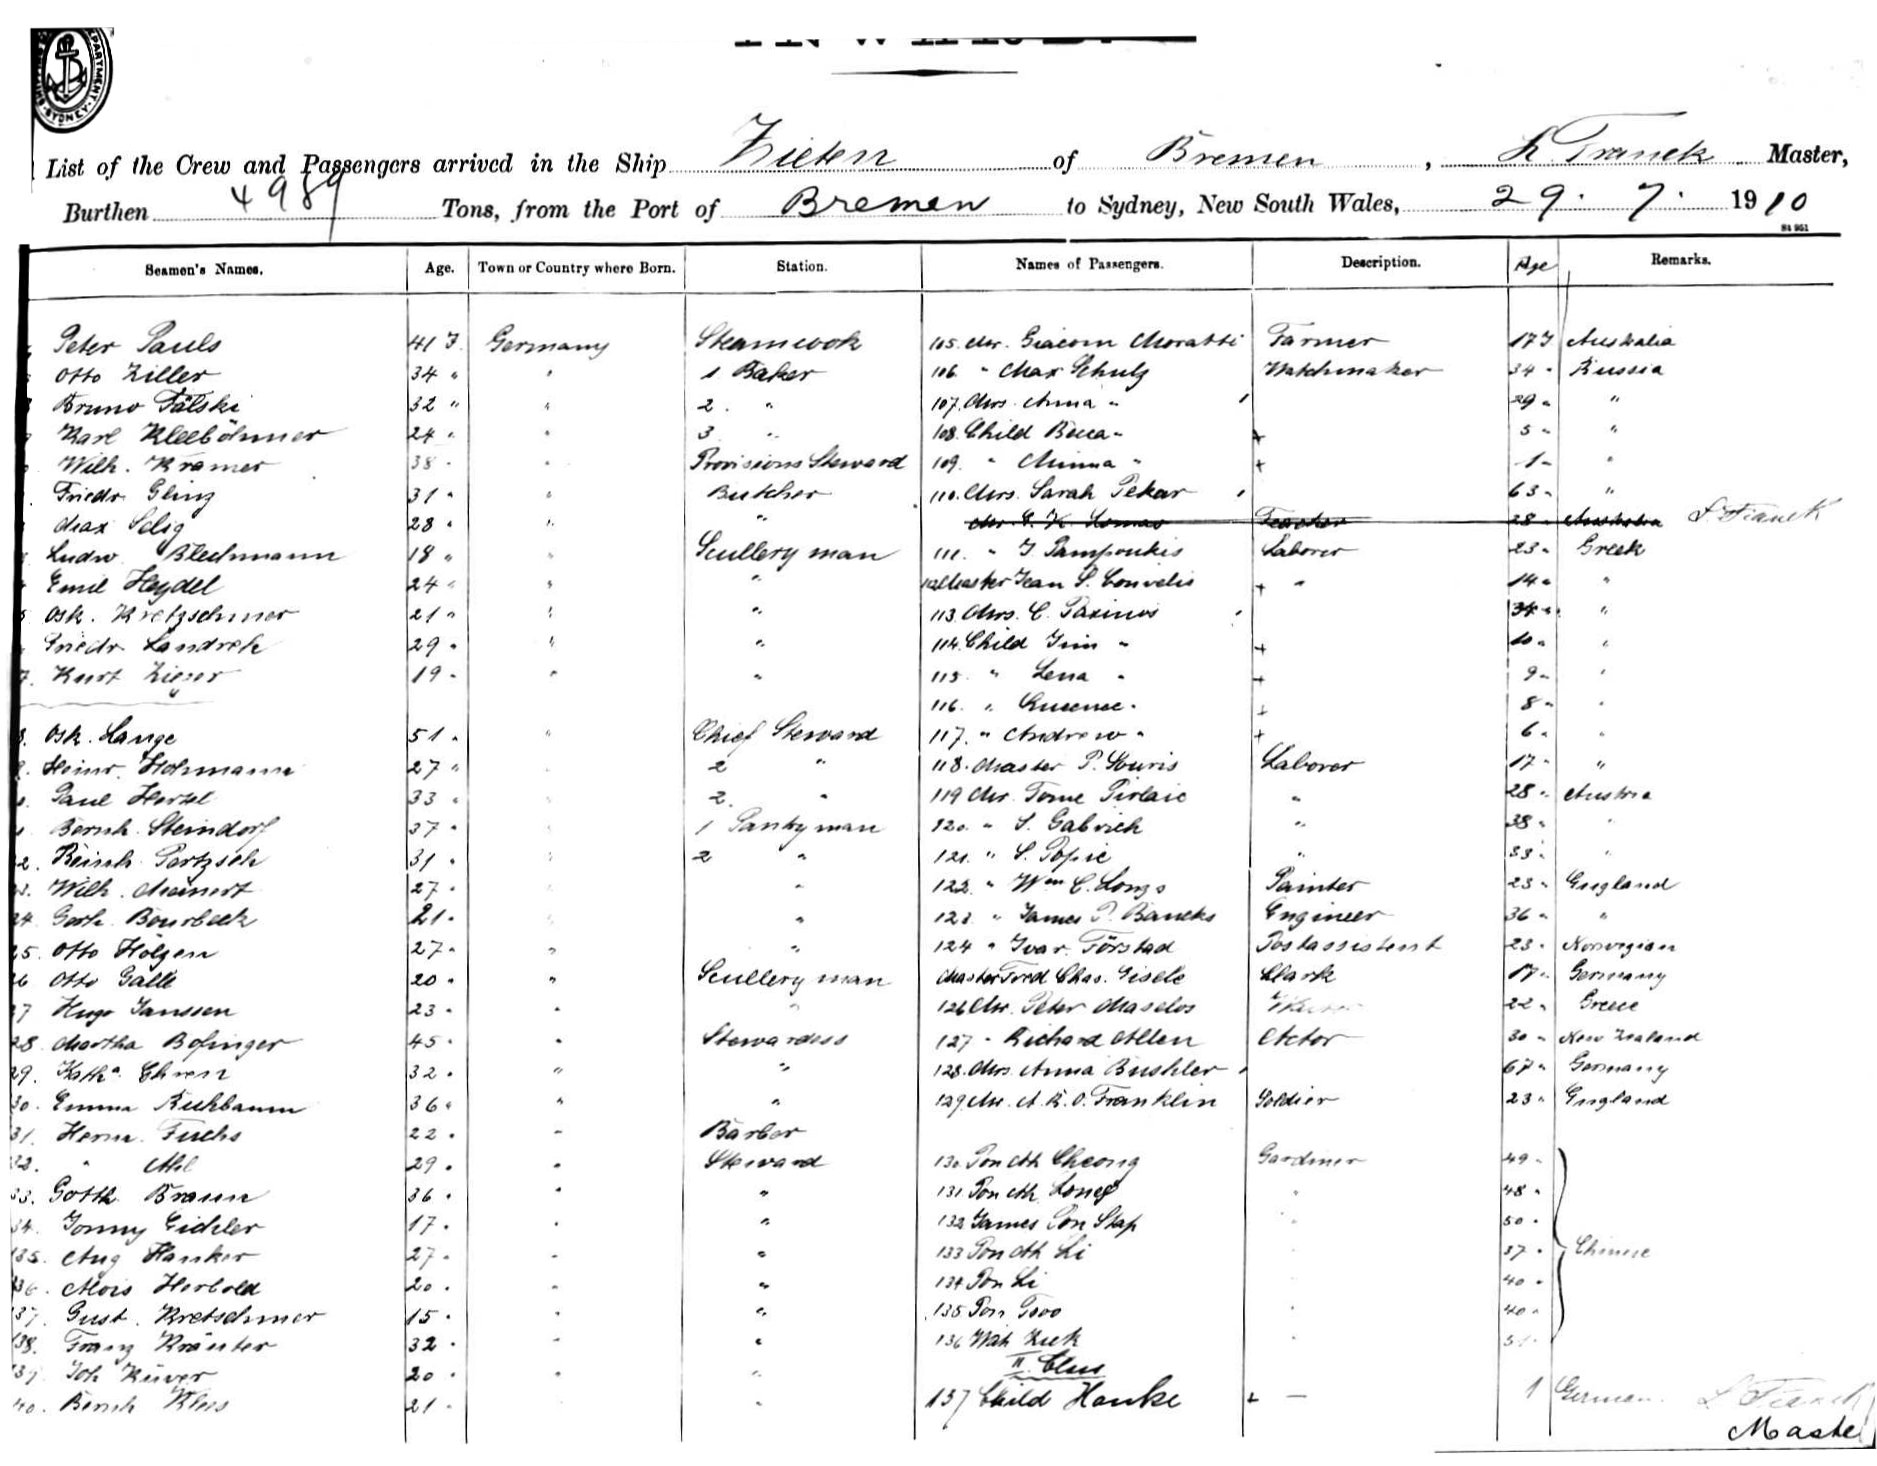 DEPARTMENT SYDNEY
INWARD.
List of the Crew and Passengers arrived in the Ship Zieten of Bremen, L. Franck Master,
Burthen 4989 Tons, from the Port of Bremen to Sydney, New South Wales, 29. 7. 1910
Seamen's Names. Age. Town or Country where Born. Station. Names of Passengers. Description. Age Remarks.
Peter Pauls 41 Germany Steamcook 105. Mr. Giacom Moratti Farmer 17 Australia
Otto Ziller 34 " " 1 Baker 106 " Max Schulz Watchmaker 34 " Russia
Bruno Fälski 32 " " 2. " 107. Mrs. Anna " 29 " "
Karl Kleeböhmer 24 " " 3 " 108. Child Becca " + 5 " "
Wilh. Kramer 38 " " Provisions Steward 109. " Minna " + 1 " "
Friedr. Glinz 31 " " Butcher 110. Mrs. Sarah Pekar 63 " "
Max Selig 28 " " " Mr. K. Lomas Teacher 28 " Australia L. Franck
Ludw Blechmann 18 " " Scullery man 111. " J Pampoukis Laborer 23 " Greek
Emil Heydel 24 " " " 112 Master Jean S. Couvelis + " 14 " "
Osk. Kretzschmer 21 " " " 113. Mrs. C. Paxinos 34 " "
Friedr. Landreh 29 " " " 114. Child Jim " + 10 " "
Kurt Zieger 19 " " " 115. " Lena " + 9 " "
116. " " + 8 " "
Osk. Lange 51 " " Chief Steward 117. " Andrew " + 6 " "
Heinr. Hohmann 27 " " 2 " 118. Master P. Souris Laborer 17 " "
Paul Hertel 33 " " 2. " 119 Mr. Tome Pirlaic " 28 " Austria
Bernh. Steindorf 37 " " 1 Pantry man 120. " S. Gabrich " 38 " "
22. Reinh. Pertzsch 31 " " 2 " 121. " S. Popic " 33 " "
23. Wilh. Meinert 27 " " " 122. " Wm C. Longs Painter 23 " England
24. Gerh. Bourbeck 21 " " " 123. " James P. Bancks Engineer 36 " "
25. Otto Hölzen 27 " " " 124 " Ivar. Törstad Postassistent 23 " Norwegian
26 Otto Galle 20 " " Scullery man Master Ferd Chas. Gisele Clerk 17 " Germany
27 Hugo Janssen 23 " " " 126 Mr. Peter Maselos 22 " Greece
28. Martha Bofinger 45 " " Stewardess 127 " Richard Allen Actor 30 " New Zealand
29. Kath.a Ehren 32 " " " 128. Mrs. Anna Bushler 67 " Germany
30. Emma Kuhbaum 36 " " " 129 Mr. A. R. O. Franklin Soldier 23 " England
31. Herm. Fuchs 22 " " Barber
32. " Abel 29 " " Steward 130. Pon Ah Cheong Gardiner 49 "
33. Gotth. Braun 36 " " " 131. Pon Ah Long " 48 "
34. Jonny Eichler 17 " " " 132 James Con Stap " 50 "
135. Aug Hanker 27 " " " 133 Pon Ah Li 37 " Chinese
136. Alois Herbold 20 " " " 134 Pon Li 40 "
137. Gust. Kretschmer 15 " " " 135 Pon Gooo " 40 "
138. Franz Kräuter 32 " " " 136 Wah Kuk " 51 "
139 Joh Küver 20 " " " II. Class
40. Bernh Klus 21 " " " 137 Child Hanke + — 1 German. L. Franck
Master